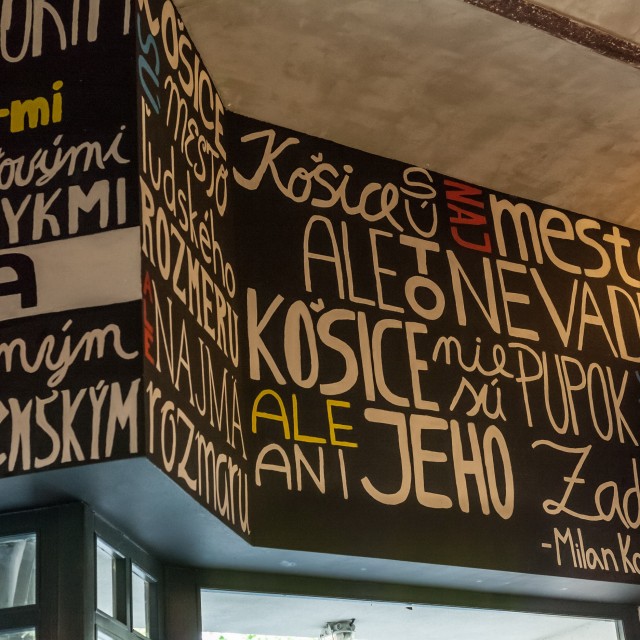 -mi
ovými
YKMI
A
ným
ENSKÝM
KOŠICE
SÚ
MESTO
ľudského
ROZMERU
NAJMÄ
rozmaru
Košice SÚ TO NAJ mesto
ALE NEVAD
KOŠICE nie sú PUPOK
ALE
ANI JEHO Zad
-Milan Ko